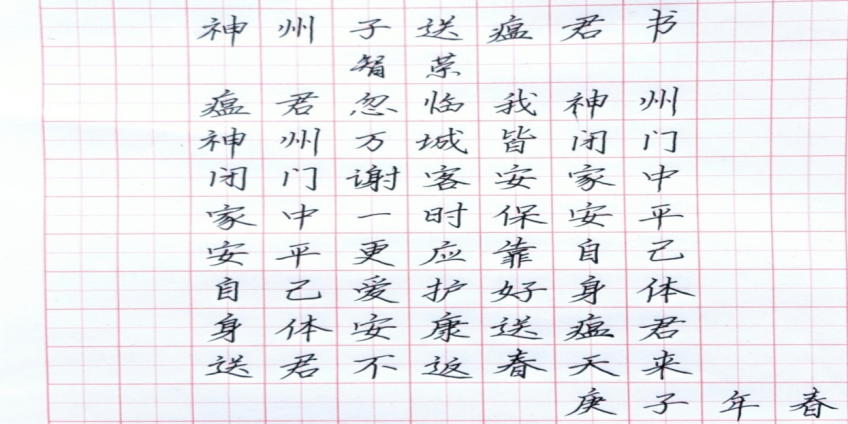 神州子送瘟君书
智荣
瘟君忽临我神州
神州万城皆闭门
闭门谢客安家中
家中一时保安平
安平更应靠自己
自己爱护好身体
身体安康送瘟君
送君不返春天来
庚子年春